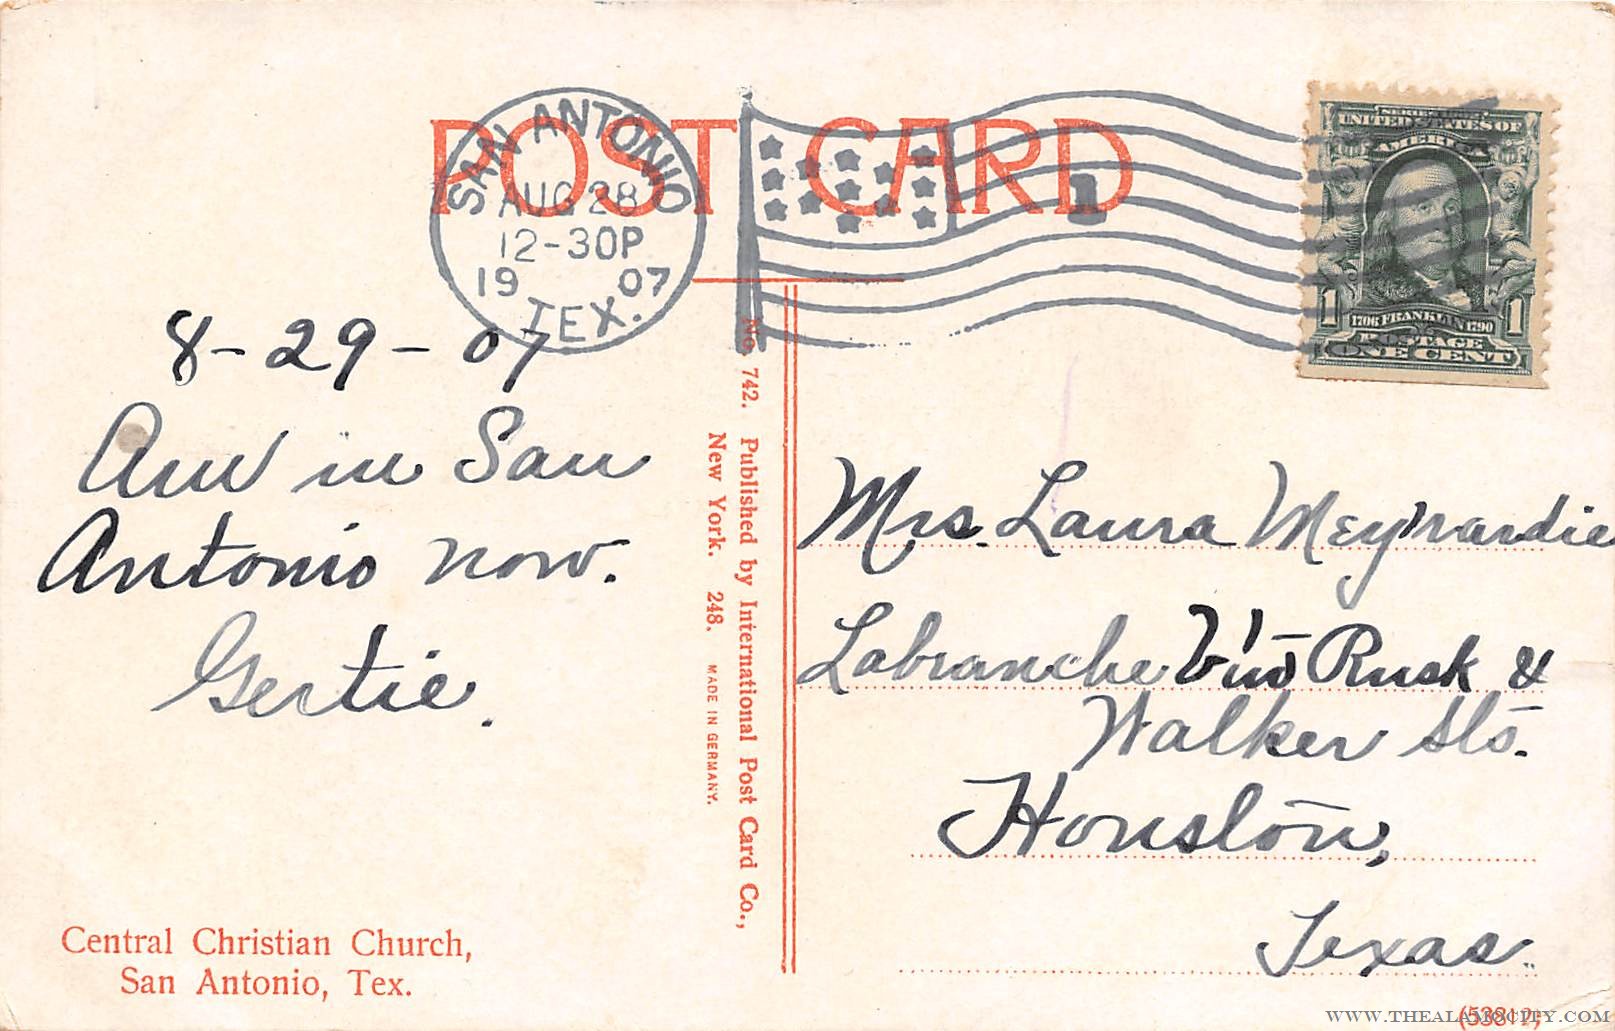 POST CARD
SAN ANTONIO
AUG 28
12-30P
19 07
TEX.
1
SERIES 1902
UNITED STATES OF
AMERICA
1706 FRANKLIN 1790
1 1
POSTAGE
ONE CENT
8-29-07
Am in San
Antonio now.
Gertie.
No. 742. Published by International Post Card Co.,
New York. 248. MADE IN GERMANY.
Mrs. Laura Meynardie
Labranche Rusk &
Walker Sts.
Houston,
Texas.
Central Christian Church,
San Antonio, Tex.
WWW.THEALAMOCITY.COM